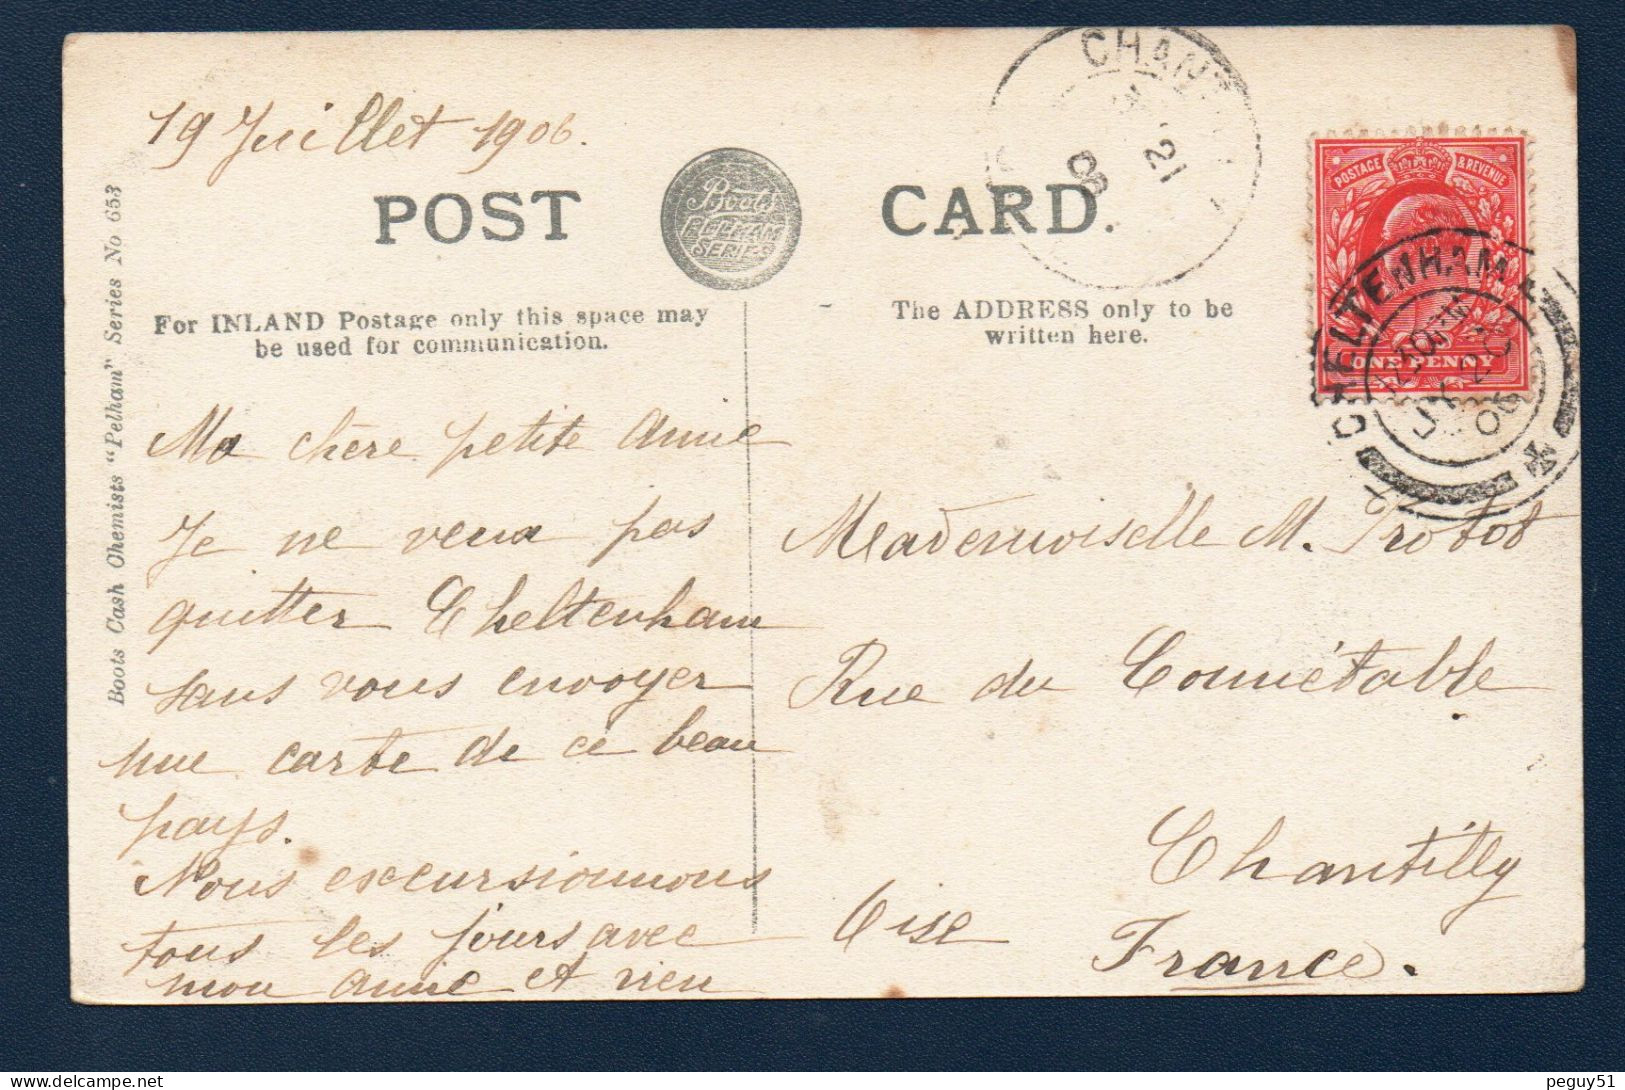 19 Juillet 1906.
CHANT
21
06
POST CARD.
Boots
PELHAM
SERIES
POSTAGE & REVENUE
ONE PENNY
CHELTENHAM
12.30PM
JY 20
06
For INLAND Postage only this space may
be used for communication.
The ADDRESS only to be
written here.
Boots Cash Chemists "Pelham" Series No 653
Ma chère petite amie
Je ne veux pas
quitter Cheltenham
sans vous envoyer
une carte de ce beau
pays.
Nous excursionnons
tous les jours avec
mon amie et rien
Mademoiselle M. Trobot
Rue du Connétable
Chantilly
Oise
France.
peguy51